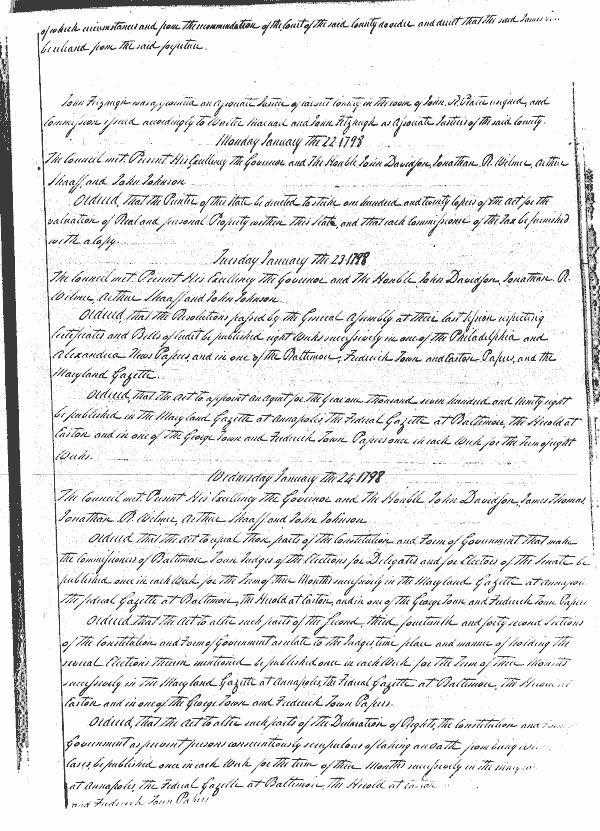 of which circumstances and from the recommendation of the Court of the said County do order and direct that the said James
be released from the said forfeiture.
John Fitzhugh was appointed an Associate Justice of Calvert County in the room of John R. Plater resigned, and
Commission issued accordingly to Walter Mackall and John Fitzhugh as Associate Justices of the said County.
Monday January the 22 1798
The Council met. Present His Excellency the Governor and The Honble John Davidson, Jonathan R. Wilmer, Arthur
Shaaff, and John Johnson
Ordered, that the Printer of this State be directed to strike one hundred and twenty copies of the Act for the
valuation of Real and personal Property within this State, and that each Commissioner of the Tax be furnished
with a Copy.
Tuesday January the 23 1798
The Council met. Present His Excellency the Governor and The Honble John Davidson, Jonathan R.
Wilmer, Arthur Shaaff and John Johnson.
Ordered, that the Resolutions passed by the General Assembly at their last Session respecting
Certificates and Bills of Credit be published eight Weeks successively in one of the Philadelphia and
Alexandria News Papers, and in one of the Baltimore, Frederick Town and Easton Papers, and the
Maryland Gazette.
Ordered, that the Act to appoint an Agent for the Year one Thousand seven hundred and Ninety eight
be published in the Maryland Gazette at Annapolis, the Federal Gazette at Baltimore, the Herald at
Easton and in one of the George Town and Frederick Town Papers once in each Week for the Term of eight
Weeks.
Wednesday January the 24 1798
The Council met. Present His Excellency the Governor and The Honble John Davidson, James Thomas,
Jonathan R. Wilmer, Arthur Shaaff and John Johnson
Ordered, that the Act to repeal those parts of the Constitution and Form of Government that make
the Commissioners of Baltimore Town Judges of the Elections for Delegates and for Electors of the Senate be
published once in each Week for the Term of three Months successively in the Maryland Gazette at Annapolis
the Federal Gazette at Baltimore, the Herald at Easton, and in one of the George Town and Frederick Town Papers
Ordered, that the Act to alter such parts of the second, third, fourteenth and forty second Sections
of the Constitution and Form of Government as relate to the Judges, time, place and manner of holding the
several Elections therein mentioned be published once in each Week for the Term of three Months
successively in the Maryland Gazette at Annapolis, the Federal Gazette at Baltimore, the Herald at
Easton and in one of the George Town and Frederick Town Papers.
Ordered, that the Act to alter such parts of the Declaration of Rights, the Constitution and Form
Government as prevent persons conscientiously scrupulous of taking an oath from being
be published once in each Week for the term of three Months successively in the
at Annapolis, the Federal Gazette at Baltimore, the Herald at Easton
and Frederick Town Papers